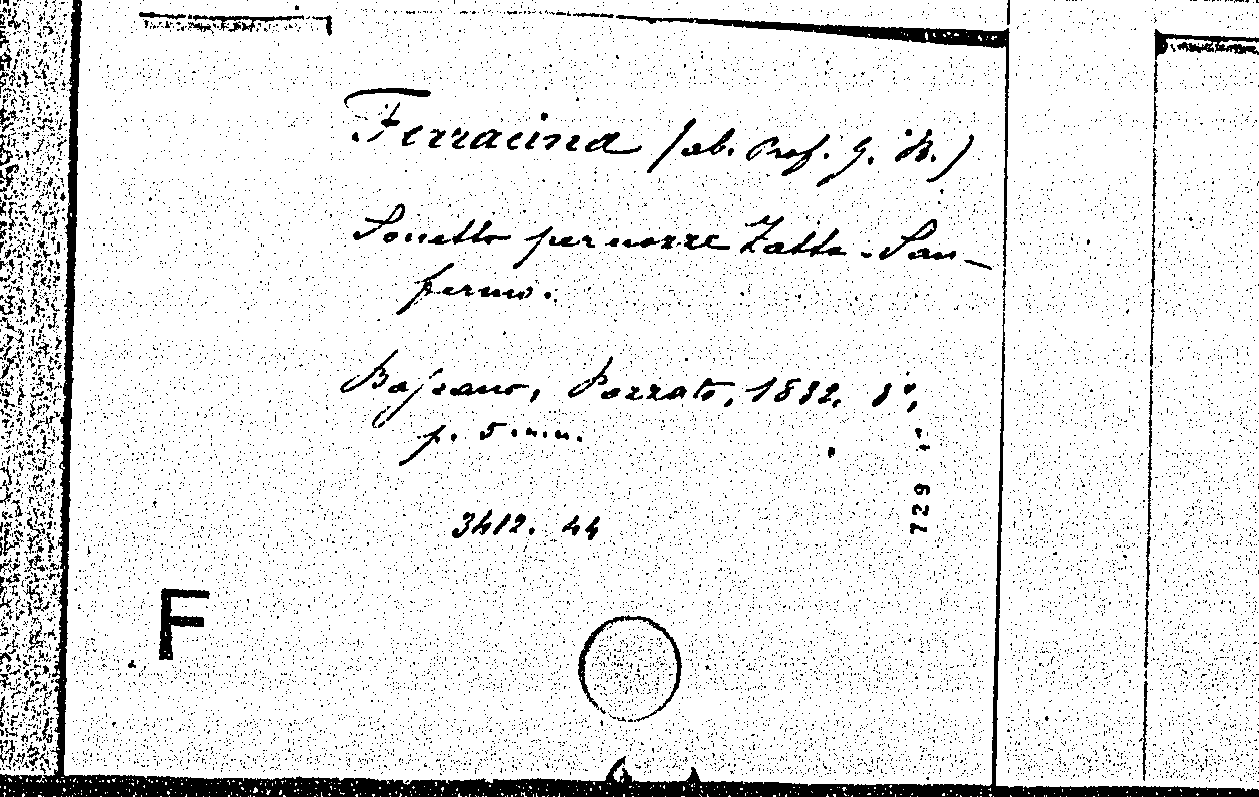 Ferracina (ab. Prof. G. B.)
Sonetto per nozze Zatta - San-
fermo.
Bassano, Pozzato, 1832, 8°,
p. 5 n.n.
3412. 44
729
F